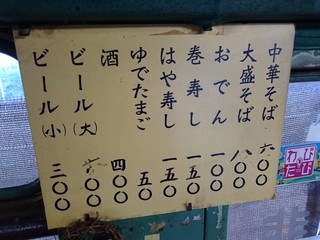 中華そば 六〇〇
大盛そば 八〇〇
おでん 一〇〇
巻寿し 一五〇
はや寿し 一五〇
ゆでたまご 五〇
酒 四〇〇
ビール(大) 〇〇
ビール(小) 三〇〇
わかび
たび